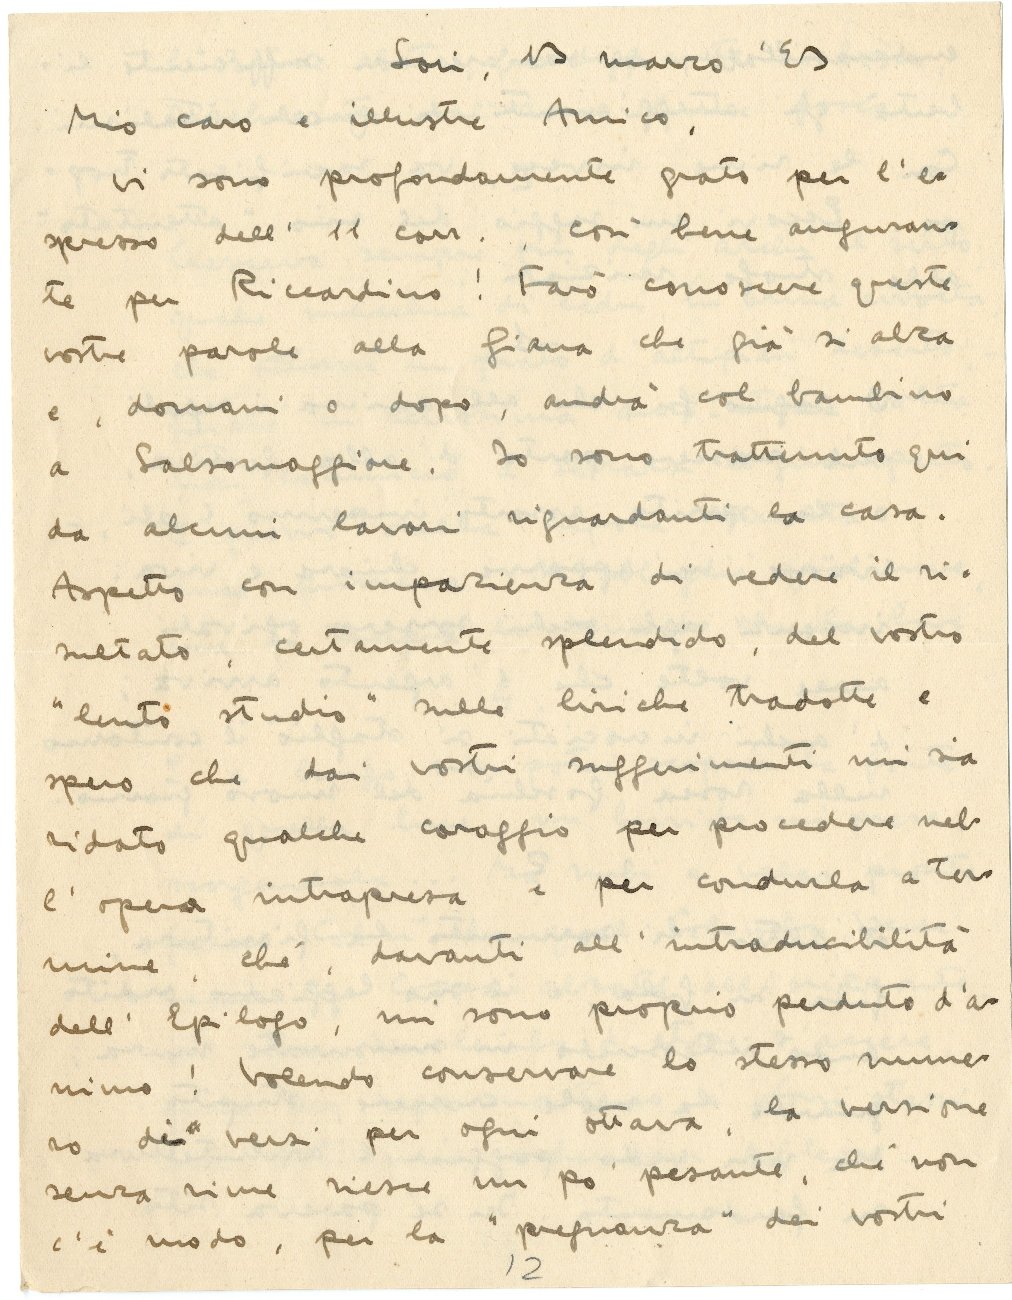 Sori, 13 marzo '43
Mio caro e illustre Amico,
vi sono profondamente grato per l'e-
spresso dell' 11 corr. , così bene auguran-
te per Riccardino! Farò conoscere queste
vostre parole alla Giana che già si alza
e, domani o dopo, andrà col bambino
a Salsomaggiore. Io sono trattenuto qui
da alcuni lavori riguardanti la casa.
Aspetto con impazienza di vedere il ri-
sultato, certamente splendido, del vostro
"lento studio" sulle liriche tradotte e
spero che dai vostri suggerimenti mi sia
ridato qualche coraggio per procedere nel-
l'opera intrapresa e per condurla a ter-
mine, ché, davanti all'intraducibilità
dell'Epilogo, mi sono proprio perduto d'a-
nimo! Volendo conservare lo stesso nume-
ro dei versi per ogni ottava, la versione
senza rime riesce un po' pesante, ché non
c'è modo, per la "pregnanza" dei vostri
12